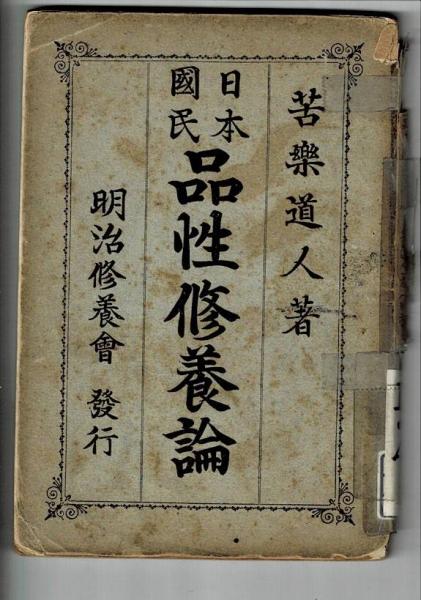 苦樂道人著
日本
國民
品性修養論
明治修養會 發行